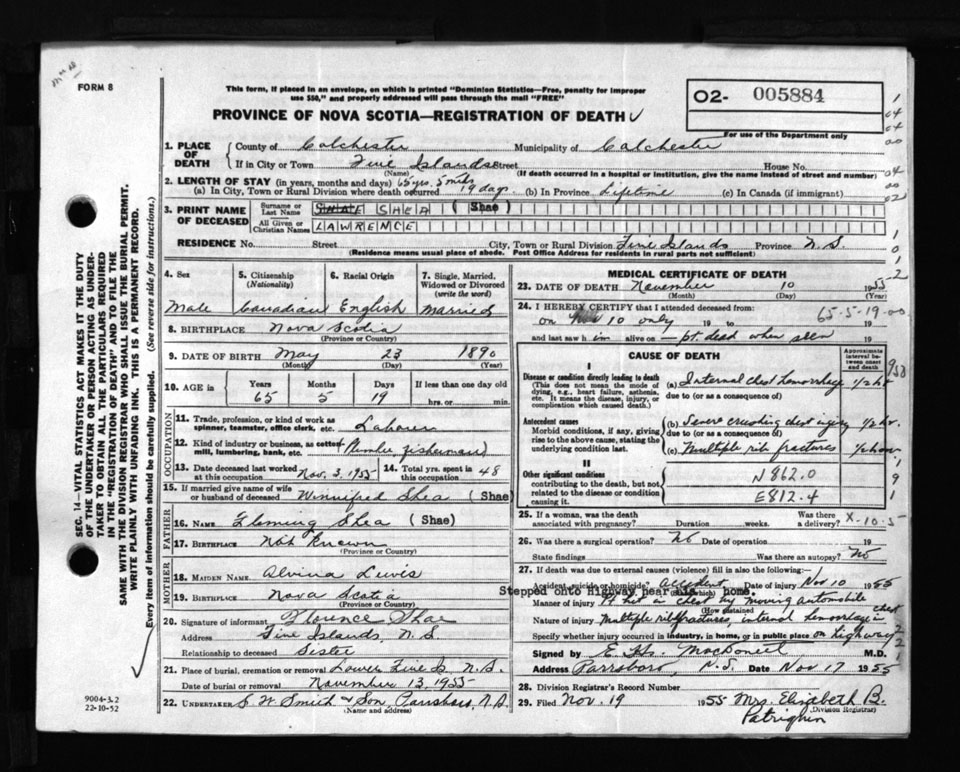 FORM 8
This form, if placed in an envelope, on which is printed "Dominion Statistics—Free, penalty for improper
use $50," and properly addressed will pass through the mail "FREE"
02- 005884
For use of the Department only
PROVINCE OF NOVA SCOTIA—REGISTRATION OF DEATH
1. PLACE OF DEATH { County of Colchester Municipality of Colchester
If in City or Town Five Islands Street House No.
(Name) (If death occurred in a hospital or institution, give the name instead of street and number)
2. LENGTH OF STAY (in years, months and days) 65 yrs. 5 mths
(a) In City, Town or Rural Division where death occurred 19 days (b) In Province Lifetime (c) In Canada (if immigrant)
3. PRINT NAME OF DECEASED { Surname or Last Name SHEA (Shae)
All Given or Christian Names LAWRENCE
RESIDENCE No. Street City, Town or Rural Division Five Islands Province N.S.
(Residence means usual place of abode. Post Office Address for residents in rural parts not sufficient)
4. Sex 5. Citizenship (Nationality) 6. Racial Origin 7. Single, Married, Widowed or Divorced (write the word)
Male Canadian English Married
8. BIRTHPLACE Nova Scotia
(Province or Country)
9. DATE OF BIRTH May 23 1890
(Month) (Day) (Year)
10. AGE in { Years Months Days If less than one day old
65 5 19 hrs. or min.
11. Trade, profession, or kind of work as spinner, teamster, office clerk, etc. Labourer
12. Kind of industry or business, as cotton mill, lumbering, bank, etc. (Lumber, fisherman)
13. Date deceased last worked at this occupation Nov. 3, 1955 14. Total yrs. spent in this occupation 48
15. If married give name of wife or husband of deceased Winnifred Shea (Shae)
FATHER
16. NAME Fleming Shea (Shae)
17. BIRTHPLACE Not Known
(Province or Country)
MOTHER
18. MAIDEN NAME Alvina Lewis
19. BIRTHPLACE Nova Scotia
(Province or Country)
20. Signature of informant Florence Shae
Address Five Islands, N.S.
Relationship to deceased Sister
21. Place of burial, cremation or removal Lower Five Is. N.S.
Date of burial or removal November 13, 1955
22. UNDERTAKER S. W. Smith & Son, Parrsboro, N.S.
(Name and address)
MEDICAL CERTIFICATE OF DEATH
23. DATE OF DEATH November 10 1955
(Month) (Day) (Year)
24. I HEREBY CERTIFY that I attended deceased from: 65-5-19-00
on Nov 10 only 19 to 19
and last saw him alive on — pt. dead when seen 19
CAUSE OF DEATH
Approximate interval between onset and death
I
Disease or condition directly leading to death
(This does not mean the mode of dying, e.g., heart failure, asthenia, etc. It means the disease, injury, or complication which caused death.)
(a) Internal chest hemorrhage 1/2 hr
due to (or as a consequence of)
Antecedent causes
Morbid conditions, if any, giving rise to the above cause, stating the underlying condition last.
(b) Severe crushing chest injury 1/2 hr.
due to (or as a consequence of)
(c) Multiple rib fractures 1/2 hour
II
Other significant conditions
contributing to the death, but not related to the disease or condition causing it.
N862.0
E812.4
25. If a woman, was the death associated with pregnancy? Duration weeks. Was there a delivery? X-10-5
26. Was there a surgical operation? No Date of operation 19
State findings Was there an autopsy? No
27. If death was due to external causes (violence) fill in also the following:
Accident, suicide or homicide? Accident Date of injury Nov 10 1955
(State which)
Stepped onto highway near his home.
Manner of injury Pt hit in chest by moving automobile
(How sustained)
Nature of injury Multiple rib fractures, internal hemorrhage in chest
Specify whether injury occurred in industry, in home, or in public place on highway
Signed by E. H. MacDonald M.D.
Address Parrsboro, N.S. Date Nov 17 1955
28. Division Registrar's Record Number
29. Filed Nov. 19 1955 Mrs. Elizabeth B.
(Division Registrar)
SEC. 14—VITAL STATISTICS ACT MAKES IT THE DUTY
OF THE UNDERTAKER OR PERSON ACTING AS UNDER-
TAKER TO OBTAIN ALL THE PARTICULARS REQUIRED
IN THE "REGISTRATION OF DEATH" AND TO FILE THE
SAME WITH THE DIVISION REGISTRAR WHO SHALL ISSUE THE BURIAL PERMIT.
WRITE PLAINLY WITH UNFADING INK. THIS IS A PERMANENT RECORD.
Every item of information should be carefully supplied. (See reverse side for instructions.)
9004-3.2
22-10-52